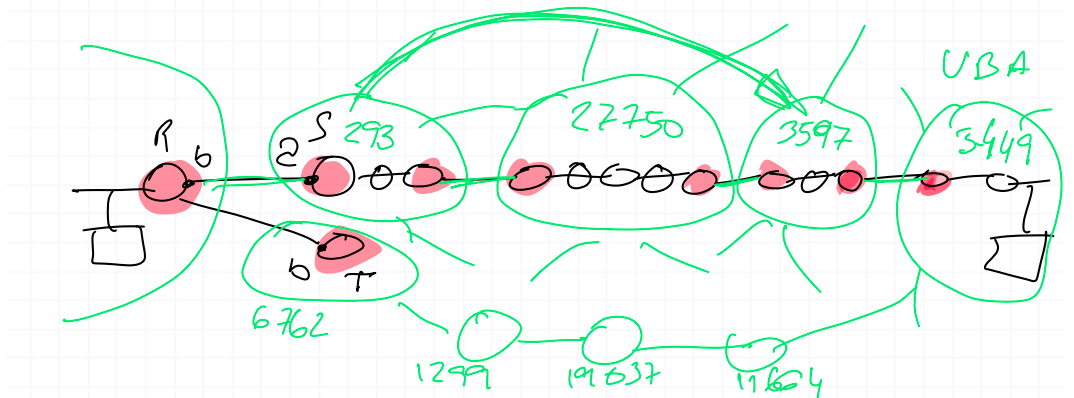 UBA
R
b
a
S
293
22750
3597
3449
b
T
6762
1299
19037
11664